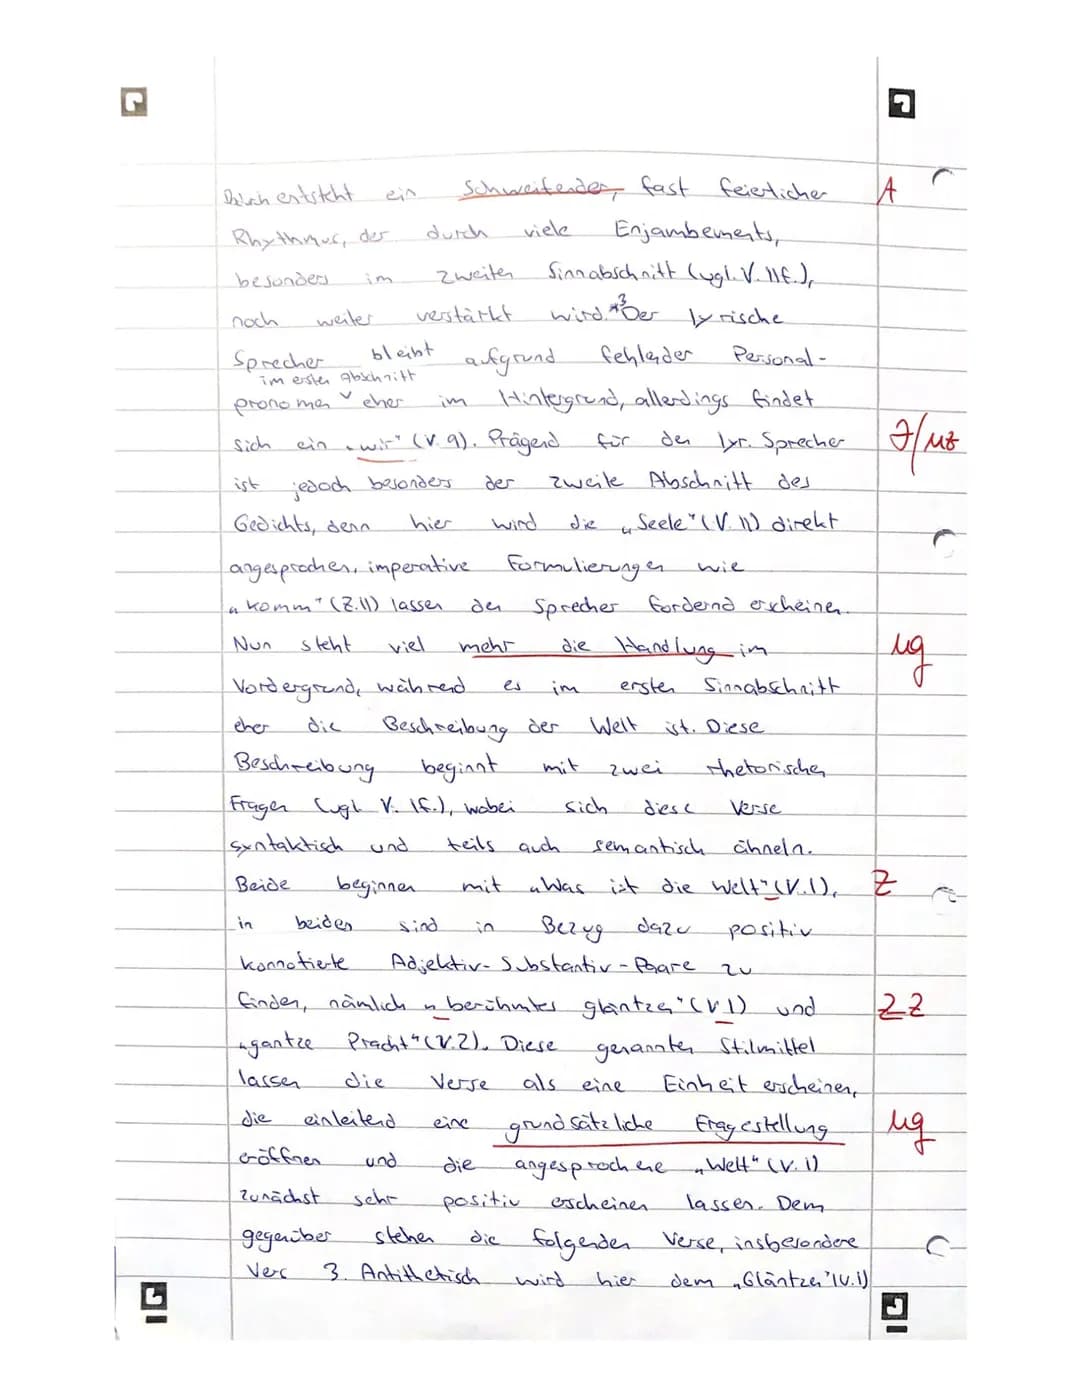 Dadurch entsteht ein schweifender, fast feierlicher A
Rhythmus, der durch viele Enjambements,
besonders im zweiten Sinnabschnitt (vgl. V. 11f.),
noch weiter verstärkt wird. *3 Der lyrische
Sprecher bleibt aufgrund fehlender Personal-
im ersten Abschnitt
pronomen eher im Hintergrund, allerdings findet
sich ein „wir" (V. 9). Prägend für den lyr. Sprecher
ist jedoch besonders der zweite Abschnitt des
Gedichts, denn hier wird die „Seele" (V. 11) direkt
angesprochen, imperative Formulierungen wie
„komm" (Z. 11) lassen den Sprecher fordernd erscheinen.
Nun steht viel mehr die Handlung im ug
Vordergrund, während es im ersten Sinnabschnitt
eher die Beschreibung der Welt ist. Diese
Beschreibung beginnt mit zwei rhetorischen
Fragen (vgl. V. 1f.), wobei sich diese Verse
syntaktisch und teils auch semantisch ähneln.
Beide beginnen mit „Was ist die Welt" (V. 1), Z
in beiden sind in Bezug dazu positiv
konnotierte Adjektiv-Substantiv-Paare zu
finden, nämlich „berühmtes gläntzen" (V 1) und ZZ
„gantze Pracht" (V. 2). Diese genannten Stilmittel
lassen die Verse als eine Einheit erscheinen,
die einleitend eine grundsätzliche Fragestellung ug
eröffnen und die angesprochene „Welt" (V. 1)
zunächst sehr positiv erscheinen lassen. Dem
gegenüber stehen die folgenden Verse, insbesondere
Vers 3. Antithetisch wird hier dem „Gläntzen" (V. 1)